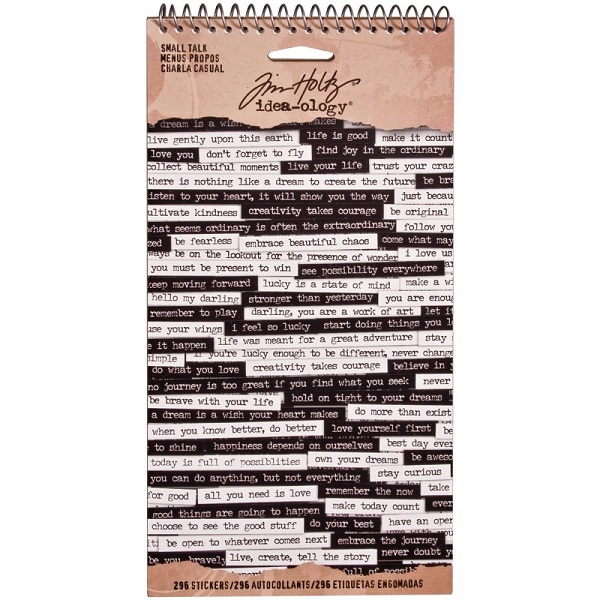 SMALL TALK
MENUS PROPOS
CHARLA CASUAL
Tim Holtz
idea-ology®
a dream is a wish makes
live gently upon this earth life is good make it count
love you don't forget to fly find joy in the ordinary
collect beautiful moments live your life trust your craz
there is nothing like a dream to create the future be bra
isten to your heart, it will show you the way just becau
ultivate kindness creativity takes courage be original
what seems ordinary is often the extraordinary follow yo
zed be fearless embrace beautiful chaos come what may
ways be on the lookout for the presence of wonder i love us
you must be present to win see possibility everywhere
keep moving forward lucky is a state of mind make a wi
hello my darling stronger than yesterday you are enoug
remember to play darling, you are a work of art let it
use your wings i feel so lucky start doing things you l
e it happen life was meant for a great adventure stay
simple if you're lucky enough to be different, never change
do what you love creativity takes courage believe in
no journey is too great if you find what you seek never
be brave with your life hold on tight to your dreams
a dream is a wish your heart makes do more than exist
when you know better, do better love yourself first be
to shine happiness depends on ourselves best day ever
today is full of possiblities own your dreams be aweso
you can do anything, but not everything stay curious
for good all you need is love remember the now take
good things are going to happen make today count ever
choose to see the good stuff do your best have an open
be open to whatever comes next embrace the journey
be you, bravely live, create, tell the story never doubt
full of possi
296 STICKERS/296 AUTOCOLLANTS/296 ETIQUETAS ENGOMADAS